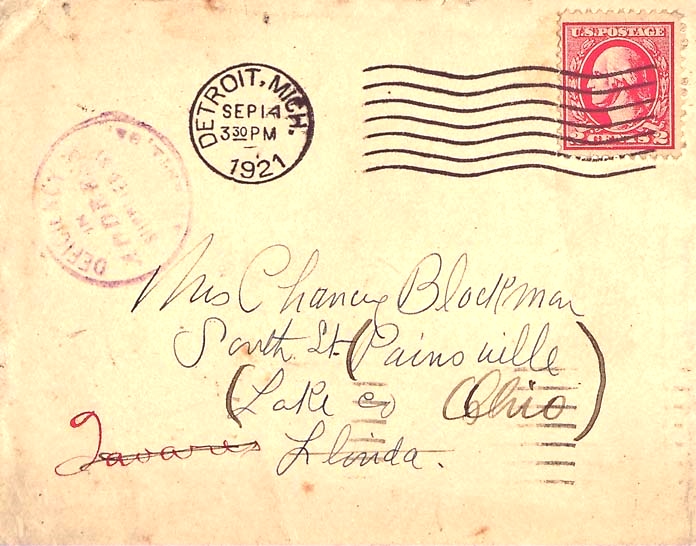 U.S. POSTAGE
2 CENTS 2
DETROIT, MICH.
SEP 14
3 30 PM
1921
DEFICIENCY
IN
ADDRESS
Mrs Chancey Blackman
South St. (Painsville
(Lake Co Ohio)
Tavares Florida.